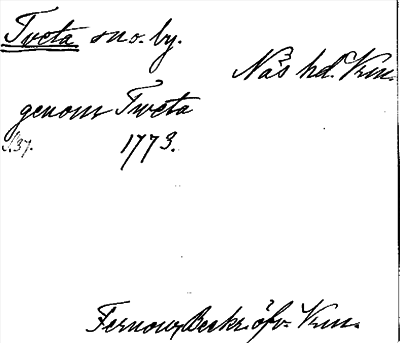 Tveta sno. by.
Näs hd. Vrm.
genom Tveta
S. 37. 1773.
Fernow, Beskr. öfv. Vrm.